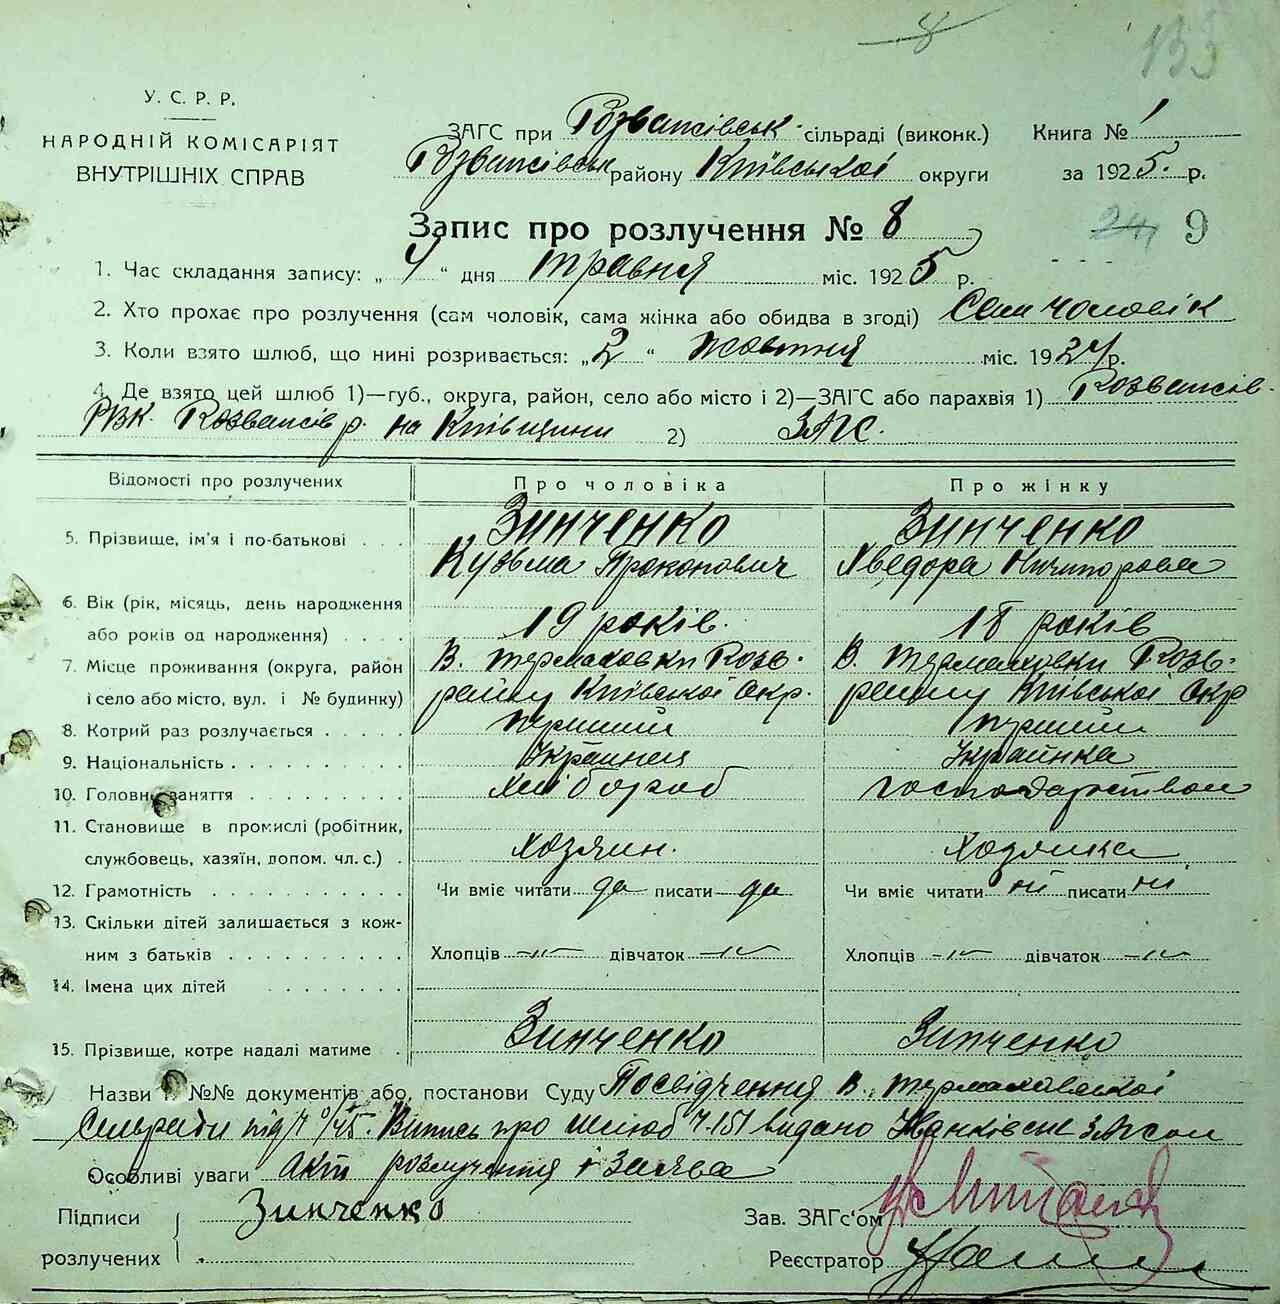 8
133
У. С. Р. Р.
НАРОДНІЙ КОМІСАРІЯТ
ВНУТРІШНІХ СПРАВ
ЗАГС при Розважівськ. сільраді (виконк.) Книга № 1
Розважівськ району Київської округи за 1925. р.
Запис про розлучення № 8
24 9
1. Час складання запису: „4“ дня травня міс. 1925 р.
2. Хто прохає про розлучення (сам чоловік, сама жінка або обидва в згоді) Сам чоловік
3. Коли взято шлюб, що нині розривається: „2“ жовтня міс. 1924 р.
4. Де взято цей шлюб 1)—губ., округа, район, село або місто і 2)—ЗАГС або парахвія 1) Розважів-
РВК. Розважів р. на Київщини 2) ЗАГС.
Відомості про розлучених Про чоловіка Про жінку
5. Прізвище, ім'я і по-батькові Зинченко Зинченко
Кузьма Прокопович Хведора Ничипорова
6. Вік (рік, місяць, день народження
або років од народження) 19 років. 18 років
7. Місце проживання (округа, район В. Термаховки Розв. В. Термаховки Розв.
і село або місто, вул. і № будинку) району Київської Окр. району Київської Окр
8. Котрий раз розлучається перший перший
9. Національність Українця Українка
10. Головне заняття хлібороб господарством
11. Становище в промислі (робітник,
службовець, хазяїн, допом. чл. с.) хозяин. хозяика
12. Грамотність Чи вміє читати да писати да Чи вміє читати ні писати ні
13. Скільки дітей залишається з кож-
ним з батьків Хлопців —"— дівчаток —"— Хлопців —"— дівчаток —"—
14. Імена цих дітей
15. Прізвище, котре надалі матиме Зинченко Зинченко
Назви і №№ документів або, постанови Суду Посвідчення В. Термаховської
Сільради від Випись про шлюб ч. 151 видано Іванківськ ЗАГСом
Особливі уваги Акт розлучення і Заява
Підписи Зинченко Зав. ЗАГс'ом
розлучених Реєстратор